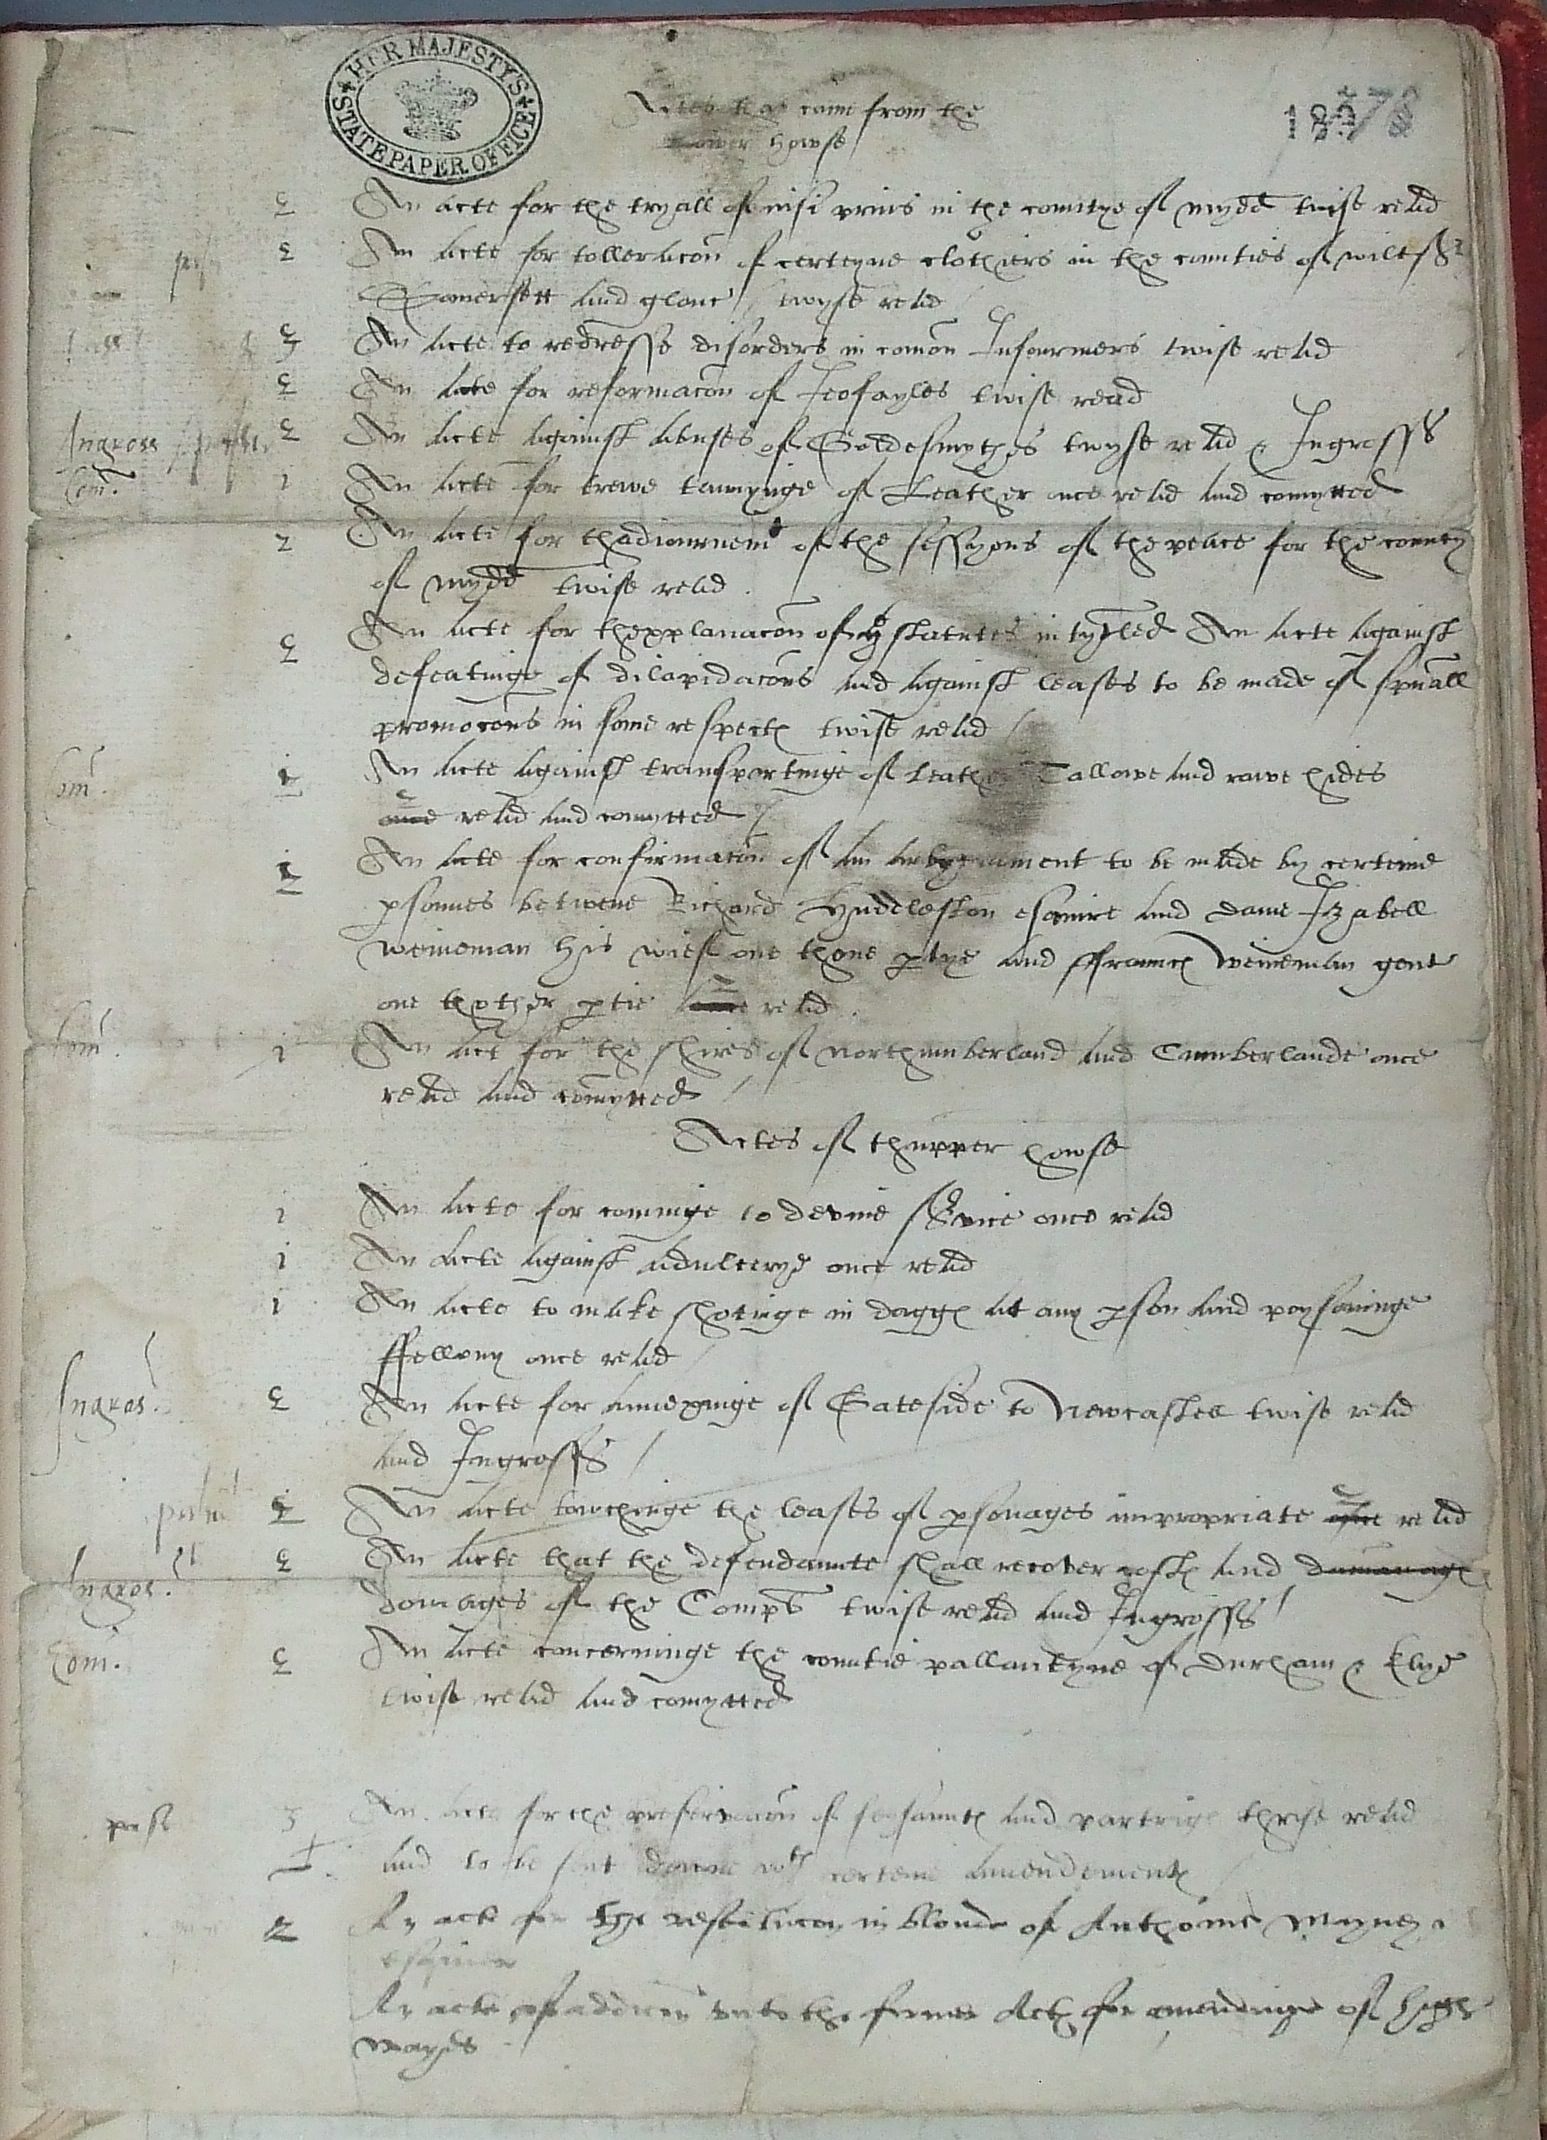 HER MAJESTY'S STATE PAPER OFFICE
Actes that came from the
Lower howse
2 An acte for the tryall of nisi prius in the comitye of midd twise read
2 An acte for tolleracon of certeyne clothiers in the counties of wiltsh
Somersett and glouc / twyse read
2 An acte to redresse disorders in comon Infourmers twise read
2 An acte for reformacon of Jeofayles twise read
Ingross 2 An acte against abuses of Goldesmythes twyse read & Ingross
Com. 1 An acte for trewe tannynge of Leather once read and comytted
2 An acte for thadiournemt of the sessyons of the peace for the county
of midd twise read.
2 An acte for thexplanacon of ye statutes intyled An acte against
defeatinge of dilapidacons and against leases to be made of spuall
promocons in some respects twise read /
Com. 2 An acte against transportinge of Leather Tallowe and rawe hides
once 2 read and comytted /
2 An acte for confirmacon of an to be made by certeine
psonnes betwene Richard Hudleston esquire and dame Izabell
Weineman his wief one thone ptye and ffrauncs Weineman gent
one thother ptie once 2 read.
Com. 1 An act for the shires of Northumberland and Cumberlande once
read and comytted /
Actes of thupper howse
1 An acte for cominge to devine service once read
1 An acte against adulterye once read
1 An acte to make shotinge in daggs at any pson and poysoninge
ffellony once read /
Ingros. 2 An acte for annexinge of Gateside to Newcastell twise read
and Ingross /
2 An acte towchinge the leases of psonages impropriate once 2 read
Ingros. 2 An acte that the defendaunte shall recover costs and
domages of the Compt twise read and Ingross /
Com. 2 An acte concerninge the countie pallantyne of Durham & Elye
twise read and comytted
past 3 An acte for the preservacon of fesaunts and partrige thrise read
and to be sent downe wth certeine amendements /
2 An acte for the restitucon in bloude of Anthonie Mayney
esquier
An acte of addicon unto the former Acts for amendinge of highe
wayes